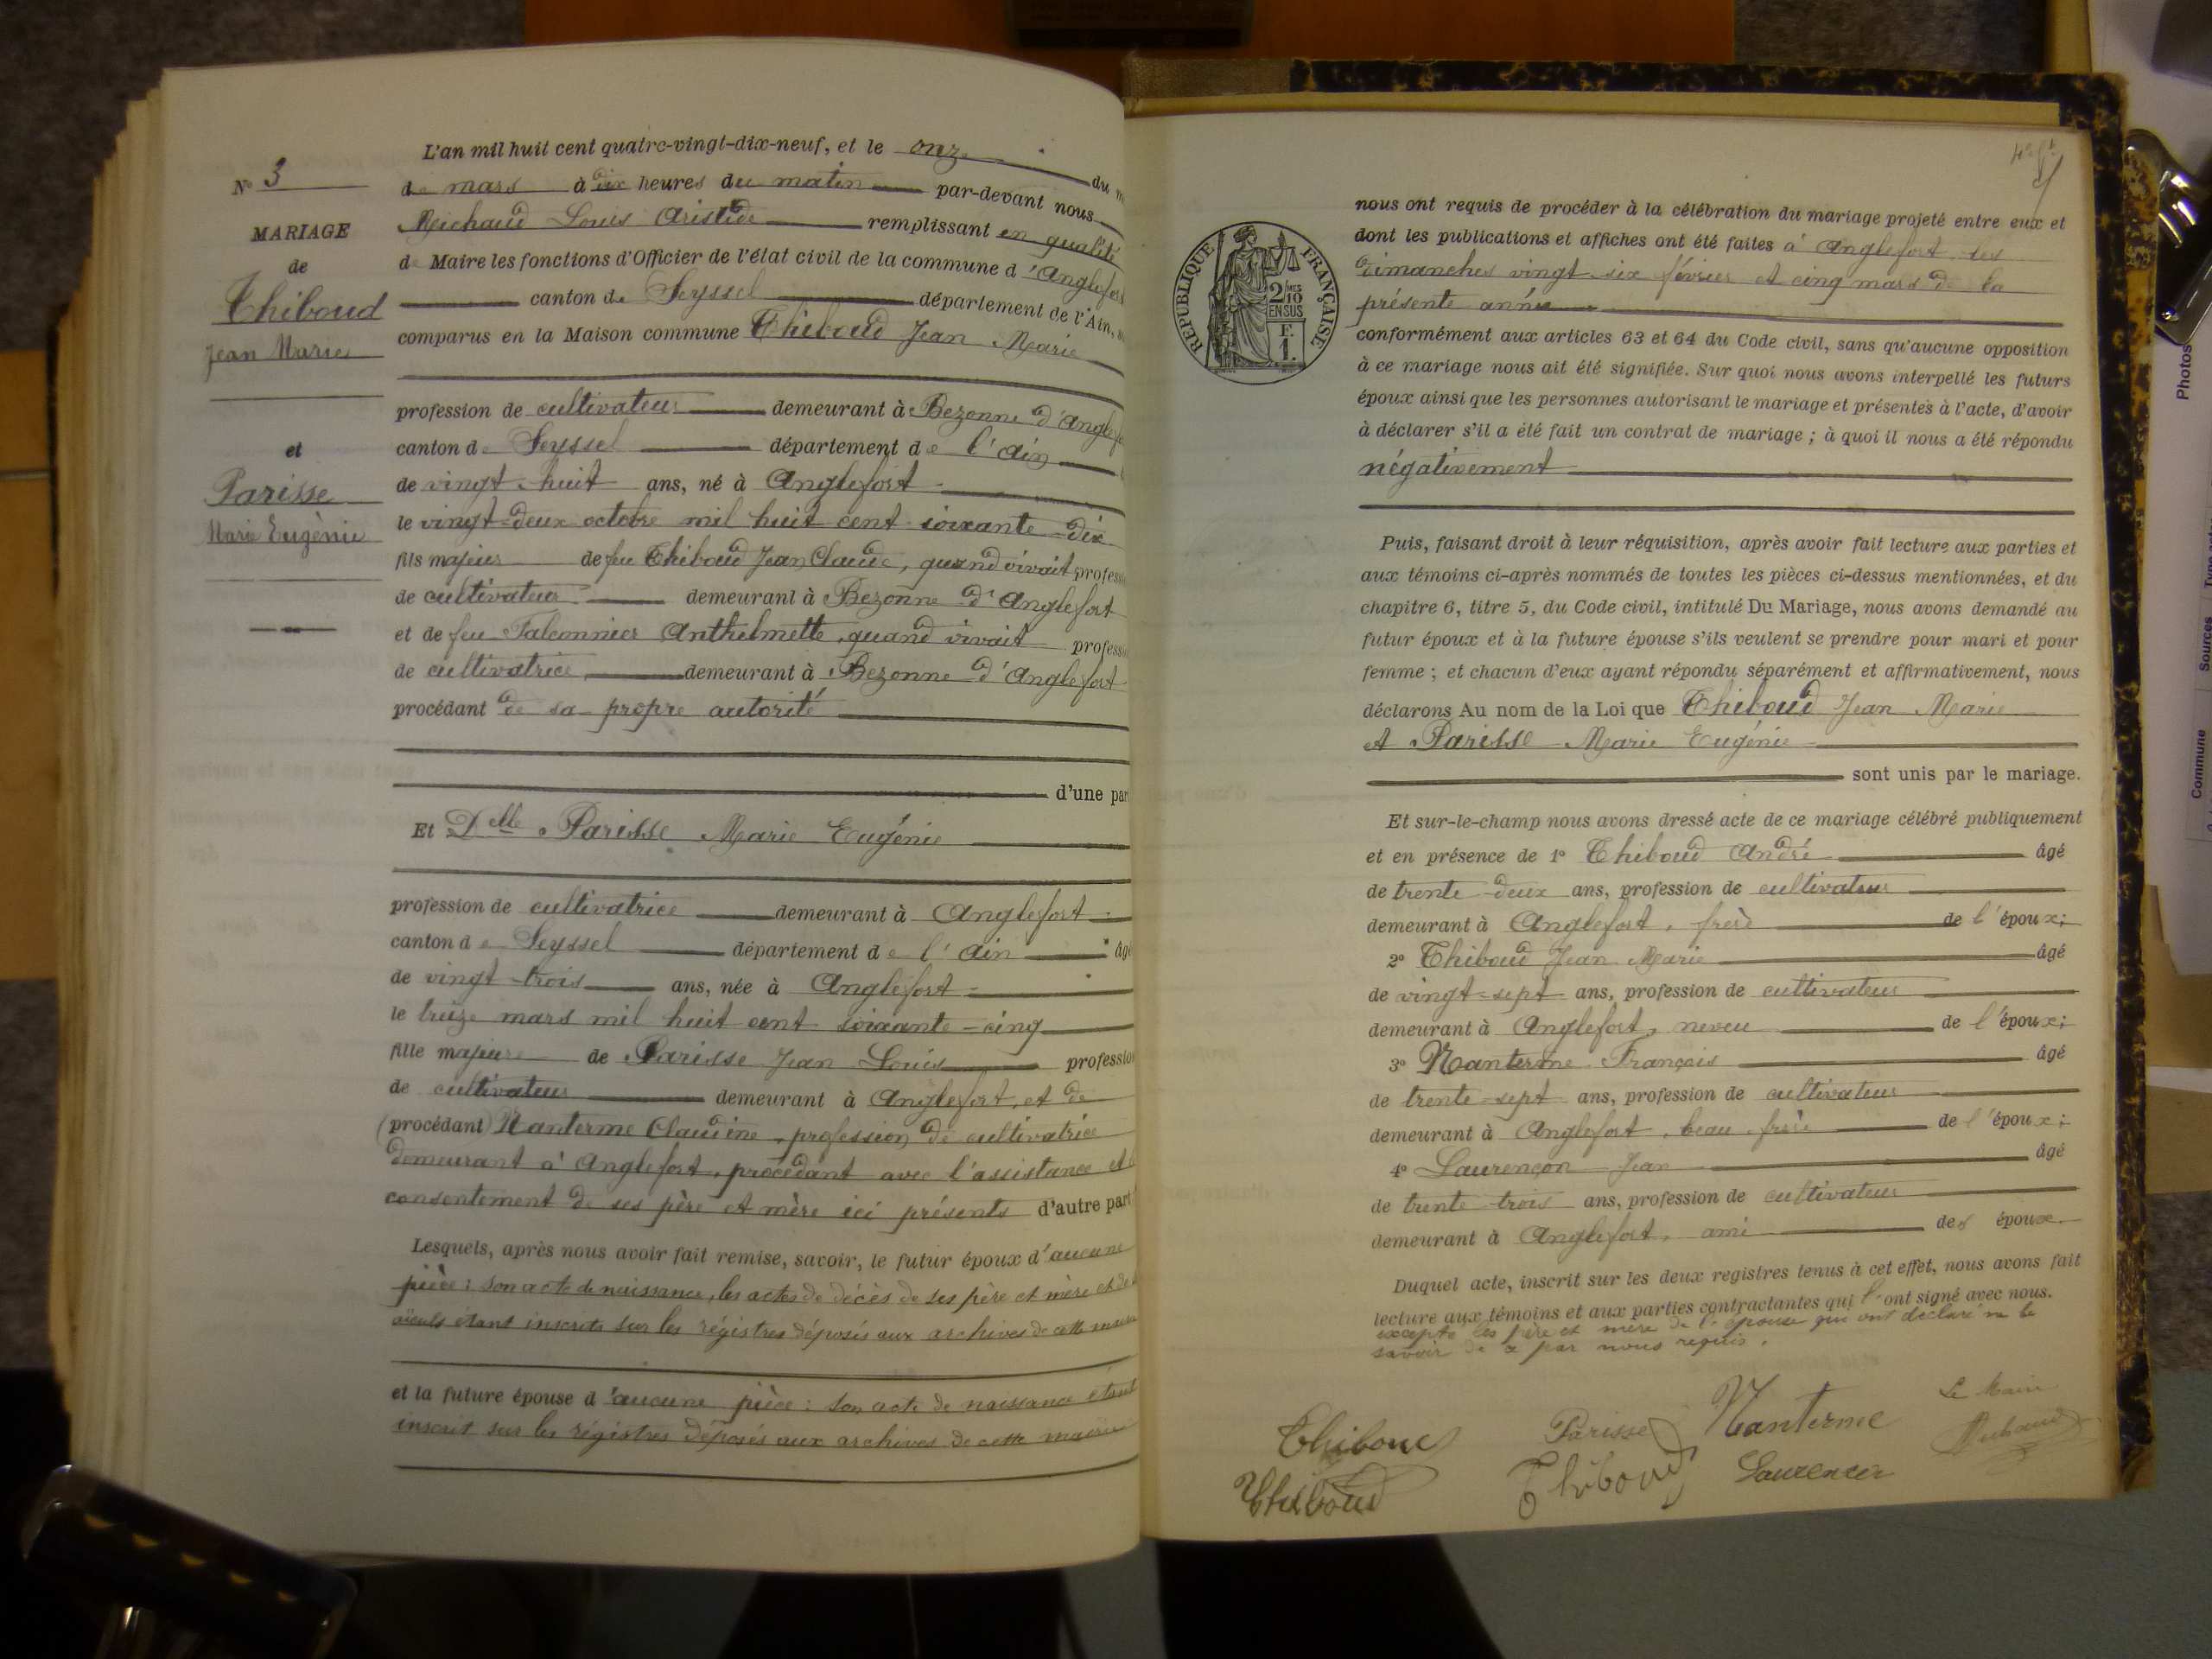 N° 3
MARIAGE
de
Thiboud
Jean Marie
et
Parisse
Marie Eugénie
L'an mil huit cent quatre-vingt-dix-neuf, et le onze du
de mars à dix heures du matin par-devant nous
Michaud Louis Aristide remplissant en qualité
de Maire les fonctions d'Officier de l'état civil de la commune d'Anglefort
canton de Seyssel département de l'Ain,
comparus en la Maison commune Thiboud Jean Marie
profession de cultivateur demeurant à Bezonne d'Anglefort
canton de Seyssel département de l'Ain
de vingt-huit ans, né à Anglefort
le vingt-deux octobre mil huit cent soixante-dix
fils majeur de feu Thiboud Jean Claude, quand vivait profession
de cultivateur demeurant à Bezonne d'Anglefort
et de feu Falconnier Anthelmette, quand vivait profession
de cultivatrice demeurant à Bezonne d'Anglefort
procédant de sa propre autorité
d'une part
Et Delle Parisse Marie Eugénie
profession de cultivatrice demeurant à Anglefort
canton de Seyssel département de l'Ain âgé
de vingt-trois ans, née à Anglefort
le treize mars mil huit cent soixante-cinq
fille majeure de Parisse Jean Louis profession
de cultivateur demeurant à Anglefort, et de
(procédant) Nanterme Claudine, profession de cultivatrice
demeurant à Anglefort, procédant avec l'assistance et le
consentement de ses père et mère ici présents d'autre part
Lesquels, après nous avoir fait remise, savoir, le futur époux d'aucune
pièce : son acte de naissance, les actes de décès de ses père et mère et de
aïeuls étant inscrits sur les régistres déposés aux archives de cette mairie
et la future épouse d'aucune pièce : son acte de naissance étant
inscrit sur les régistres déposés aux archives de cette mairie
RÉPUBLIQUE FRANÇAISE
2 MES
10
EN SUS
F.
1.
nous ont requis de procéder à la célébration du mariage projeté entre eux et
dont les publications et affiches ont été faites à Anglefort les
dimanches vingt-six février et cinq mars de la
présente année
conformément aux articles 63 et 64 du Code civil, sans qu'aucune opposition
à ce mariage nous ait été signifiée. Sur quoi nous avons interpellé les futurs
époux ainsi que les personnes autorisant le mariage et présentes à l'acte, d'avoir
à déclarer s'il a été fait un contrat de mariage ; à quoi il nous a été répondu
négativement
Puis, faisant droit à leur réquisition, après avoir fait lecture aux parties et
aux témoins ci-après nommés de toutes les pièces ci-dessus mentionnées, et du
chapitre 6, titre 5, du Code civil, intitulé Du Mariage, nous avons demandé au
futur époux et à la future épouse s'ils veulent se prendre pour mari et pour
femme ; et chacun d'eux ayant répondu séparément et affirmativement, nous
déclarons Au nom de la Loi que Thiboud Jean Marie
et Parisse Marie Eugénie
sont unis par le mariage.
Et sur-le-champ nous avons dressé acte de ce mariage célébré publiquement
et en présence de 1° Thiboud André âgé
de trente-deux ans, profession de cultivateur
demeurant à Anglefort, frère de l'époux;
2° Thiboud Jean Marie âgé
de vingt-sept ans, profession de cultivateur
demeurant à Anglefort, neveu de l'époux;
3° Nanterme François âgé
de trente-sept ans, profession de cultivateur
demeurant à Anglefort, beau-frère de l'époux;
4° Laurençon Jean âgé
de trente-trois ans, profession de cultivateur
demeurant à Anglefort, ami des époux.
Duquel acte, inscrit sur les deux registres tenus à cet effet, nous avons fait
lecture aux témoins et aux parties contractantes qui l'ont signé avec nous.
excepté les père et mère de l'épouse qui ont déclaré ne le
savoir de ce par nous requis.
Thiboud Parisse Nanterme Le Maire
Michaud
Thiboud Thiboud Laurencon
Photos
Sources
Commune